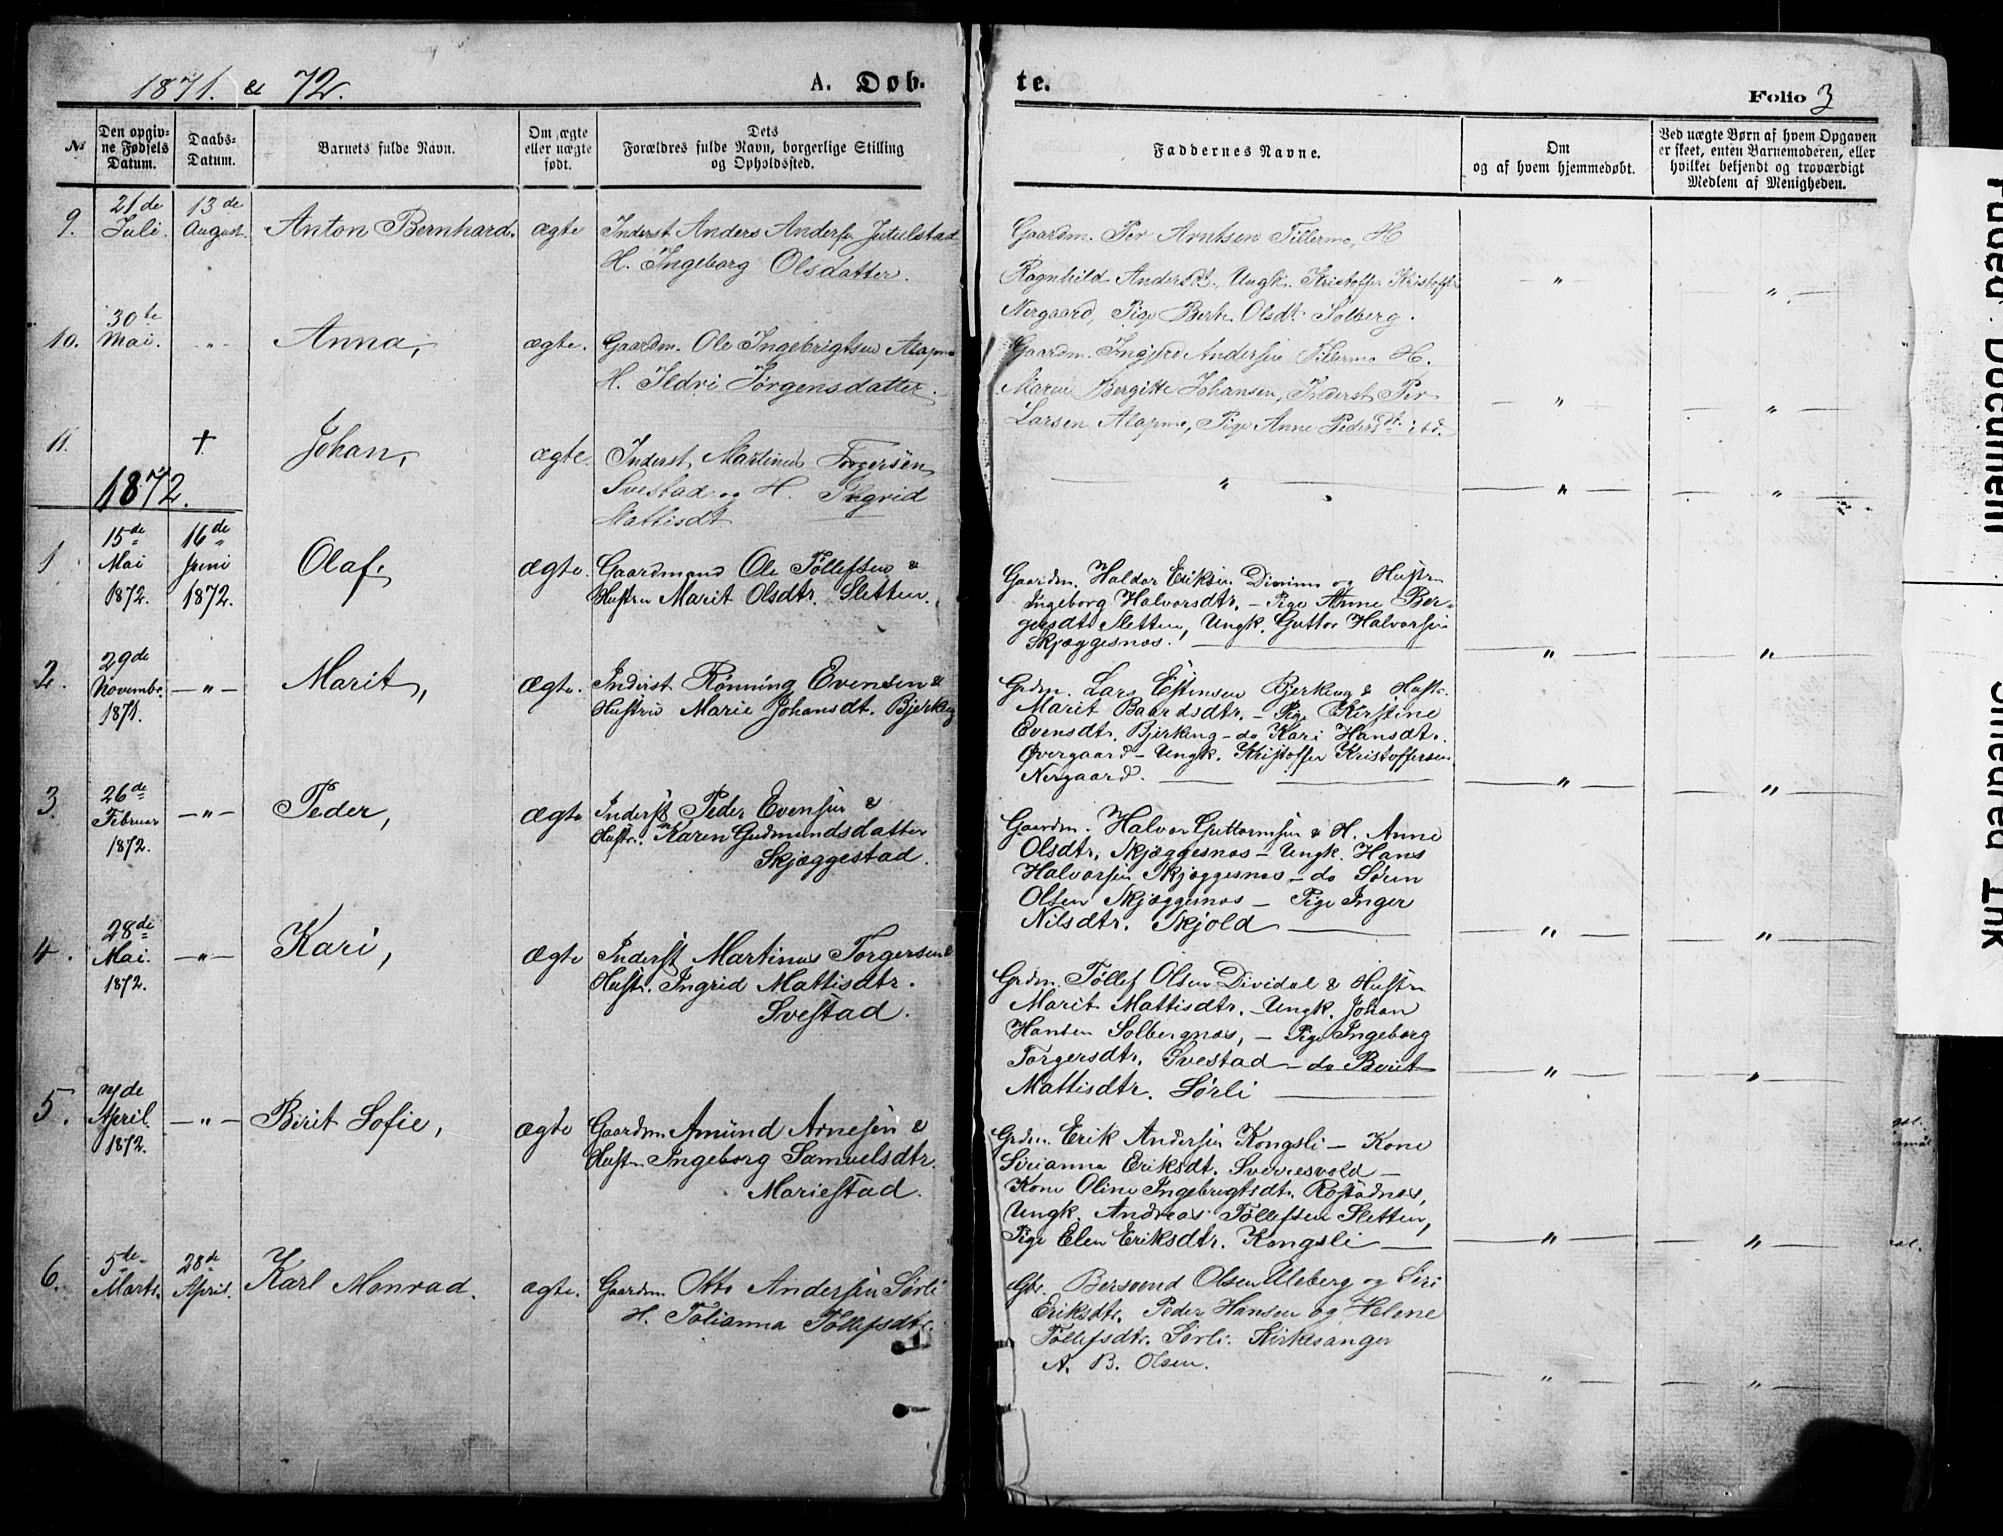 1871. & 72.
A. Døb-
te.
Folio 3
№
Den opgiv-
ne Fødsels
Datum.
Daabs-
Datum.
Barnets fulde Navn.
Om ægte
eller uægte
født.
Dets
Forældres fulde Navn, borgerlige Stilling
og Opholdssted.
Faddernes Navne.
Om
og af hvem hjemmedøbt.
Ved uægte Børn af hvem Opgaven
er skeet, enten Barnemoderen, eller
hvilket bekjendt og troværdigt
Medlem af Menigheden.
9.
21de
Juli.
13de
August.
Anton Bernhard.
ægte
Inderst Anders Anders. Jutulstad
H. Ingeborg Olsdatter.
Gaardm. Per Arntsen Fillermo, H
Ragnhild Andersdt., Ungk. Kristoffer Kristoffs.
Nergaard, Pige Berh. Olsdt. Solberg.
10.
30te
Mai.
"
Anna,
ægte.
Gaardm. Ole Ingebrigtsen Alapmo
H. Ildri Jørgensdatter.
Gaardm. Andersen Fillermo H.
Maren Bergitte Johansen, Inderst Per
Larsen Alapmo, Pige Anne Pedersdt. ibd.
11.
+
Johan,
ægte.
Inderst Martinus Torgersen
Svestad og H. Ingrid
Mattisdt
1872.
1
15de
Mai
1872.
16de
Juni
1872.
Olaf,
ægte.
Gaardmand Ole Tollefsen &
Hustru Marit Olsdtr. Sletten.
Gaardm. Haldor Eriksen og Hustru
Ingeborg Halvorsdtr. – Pige Anne Ber-
gesdtr Sletten, Ungk. Guttor Halvorsen
Skjæggesnæs.
2.
29de
Novembr.
1871.
– " –
Marit,
ægte.
Inderst Rønning Evensen &
Hustru Marie Johansdt. Bjerkeng
Grdm. Lars Estensen Bjerkeng & Hustr.
Marit Baardsdtr. – Pige Kirstine
Evensdtr. Bjerkeng – do Kari Hansdtr.
Øvergaard – Ungk. Kristoffer Kristoffersen
Nergaard.
3.
26de
Februar
1872.
– " –
Peder,
ægte
Inderst Peder Evensen &
Hustr. Karen Gudmundsdatter
Skjæggestad.
Gaardm. Halvor Guttormsen & H. Anne
Olsdtr. Skjæggesnæs – Ungk. Hans
Halvorsen Skjæggesnæs – do Søren
Olsen Skjæggesnæs – Pige Inger
Nilsdtr. Skjold
4.
28de
Mai.
1872.
– " –
Kari,
ægte
Inderst Martinus Torgersen &
Hustr. Ingrid Mattisdtr.
Svestad.
Grdm. Tollef Olsen Dividal & Hustru
Marit Mattisdtr. – Ungk. Johan
Hansen Solbergnæs, – Pige Ingeborg
Torgersdtr. Svestad – do Berit
Mattisdtr. Sørli
5.
April.
1872.
– " –
Berit Sofie,
ægte
Gaardm. Amund Arnesen &
Hustru Ingeborg Samuelsdtr.
Mariestad.
Grdm. Erik Andersen Kongsli – Kone
Sirianna Eriksdt. Sverresvold –
Kone Oline Ingebrigtsdtr. Rostadnæs,
Ungk. Andreas Tollefsen Sletten,
Pige Elen Eriksdtr. Kongsli
6.
5de
Marts.
28de
April.
Karl Monrad.
ægte.
Gaardm Otto Andersen Sørli
H. Tolianna Tollefsdtr.
Gbr. Bersvend Olsen Uleberg og Siri
Eriksdtr. Peder Hansen og Helene
Tollefsdtr. Sørli. Kirkesanger
A. B. Olsen.
Faded Document
Smeared Ink